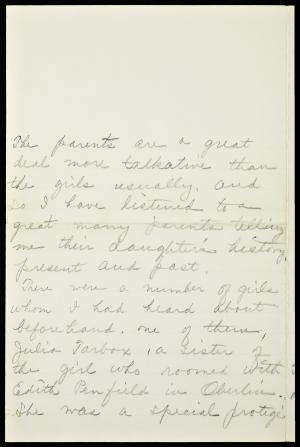 The parents are a great
deal more talkative than
the girls usually, and
so I have listened to a
great many parents telling
me their daughter's history,
present and past.
There were a number of girls
whom I had heard about
beforehand. one of them,
Julia Tarbox, a sister of
the girl who roomed with
Edith Penfield in Oberlin.
She was a special protigé